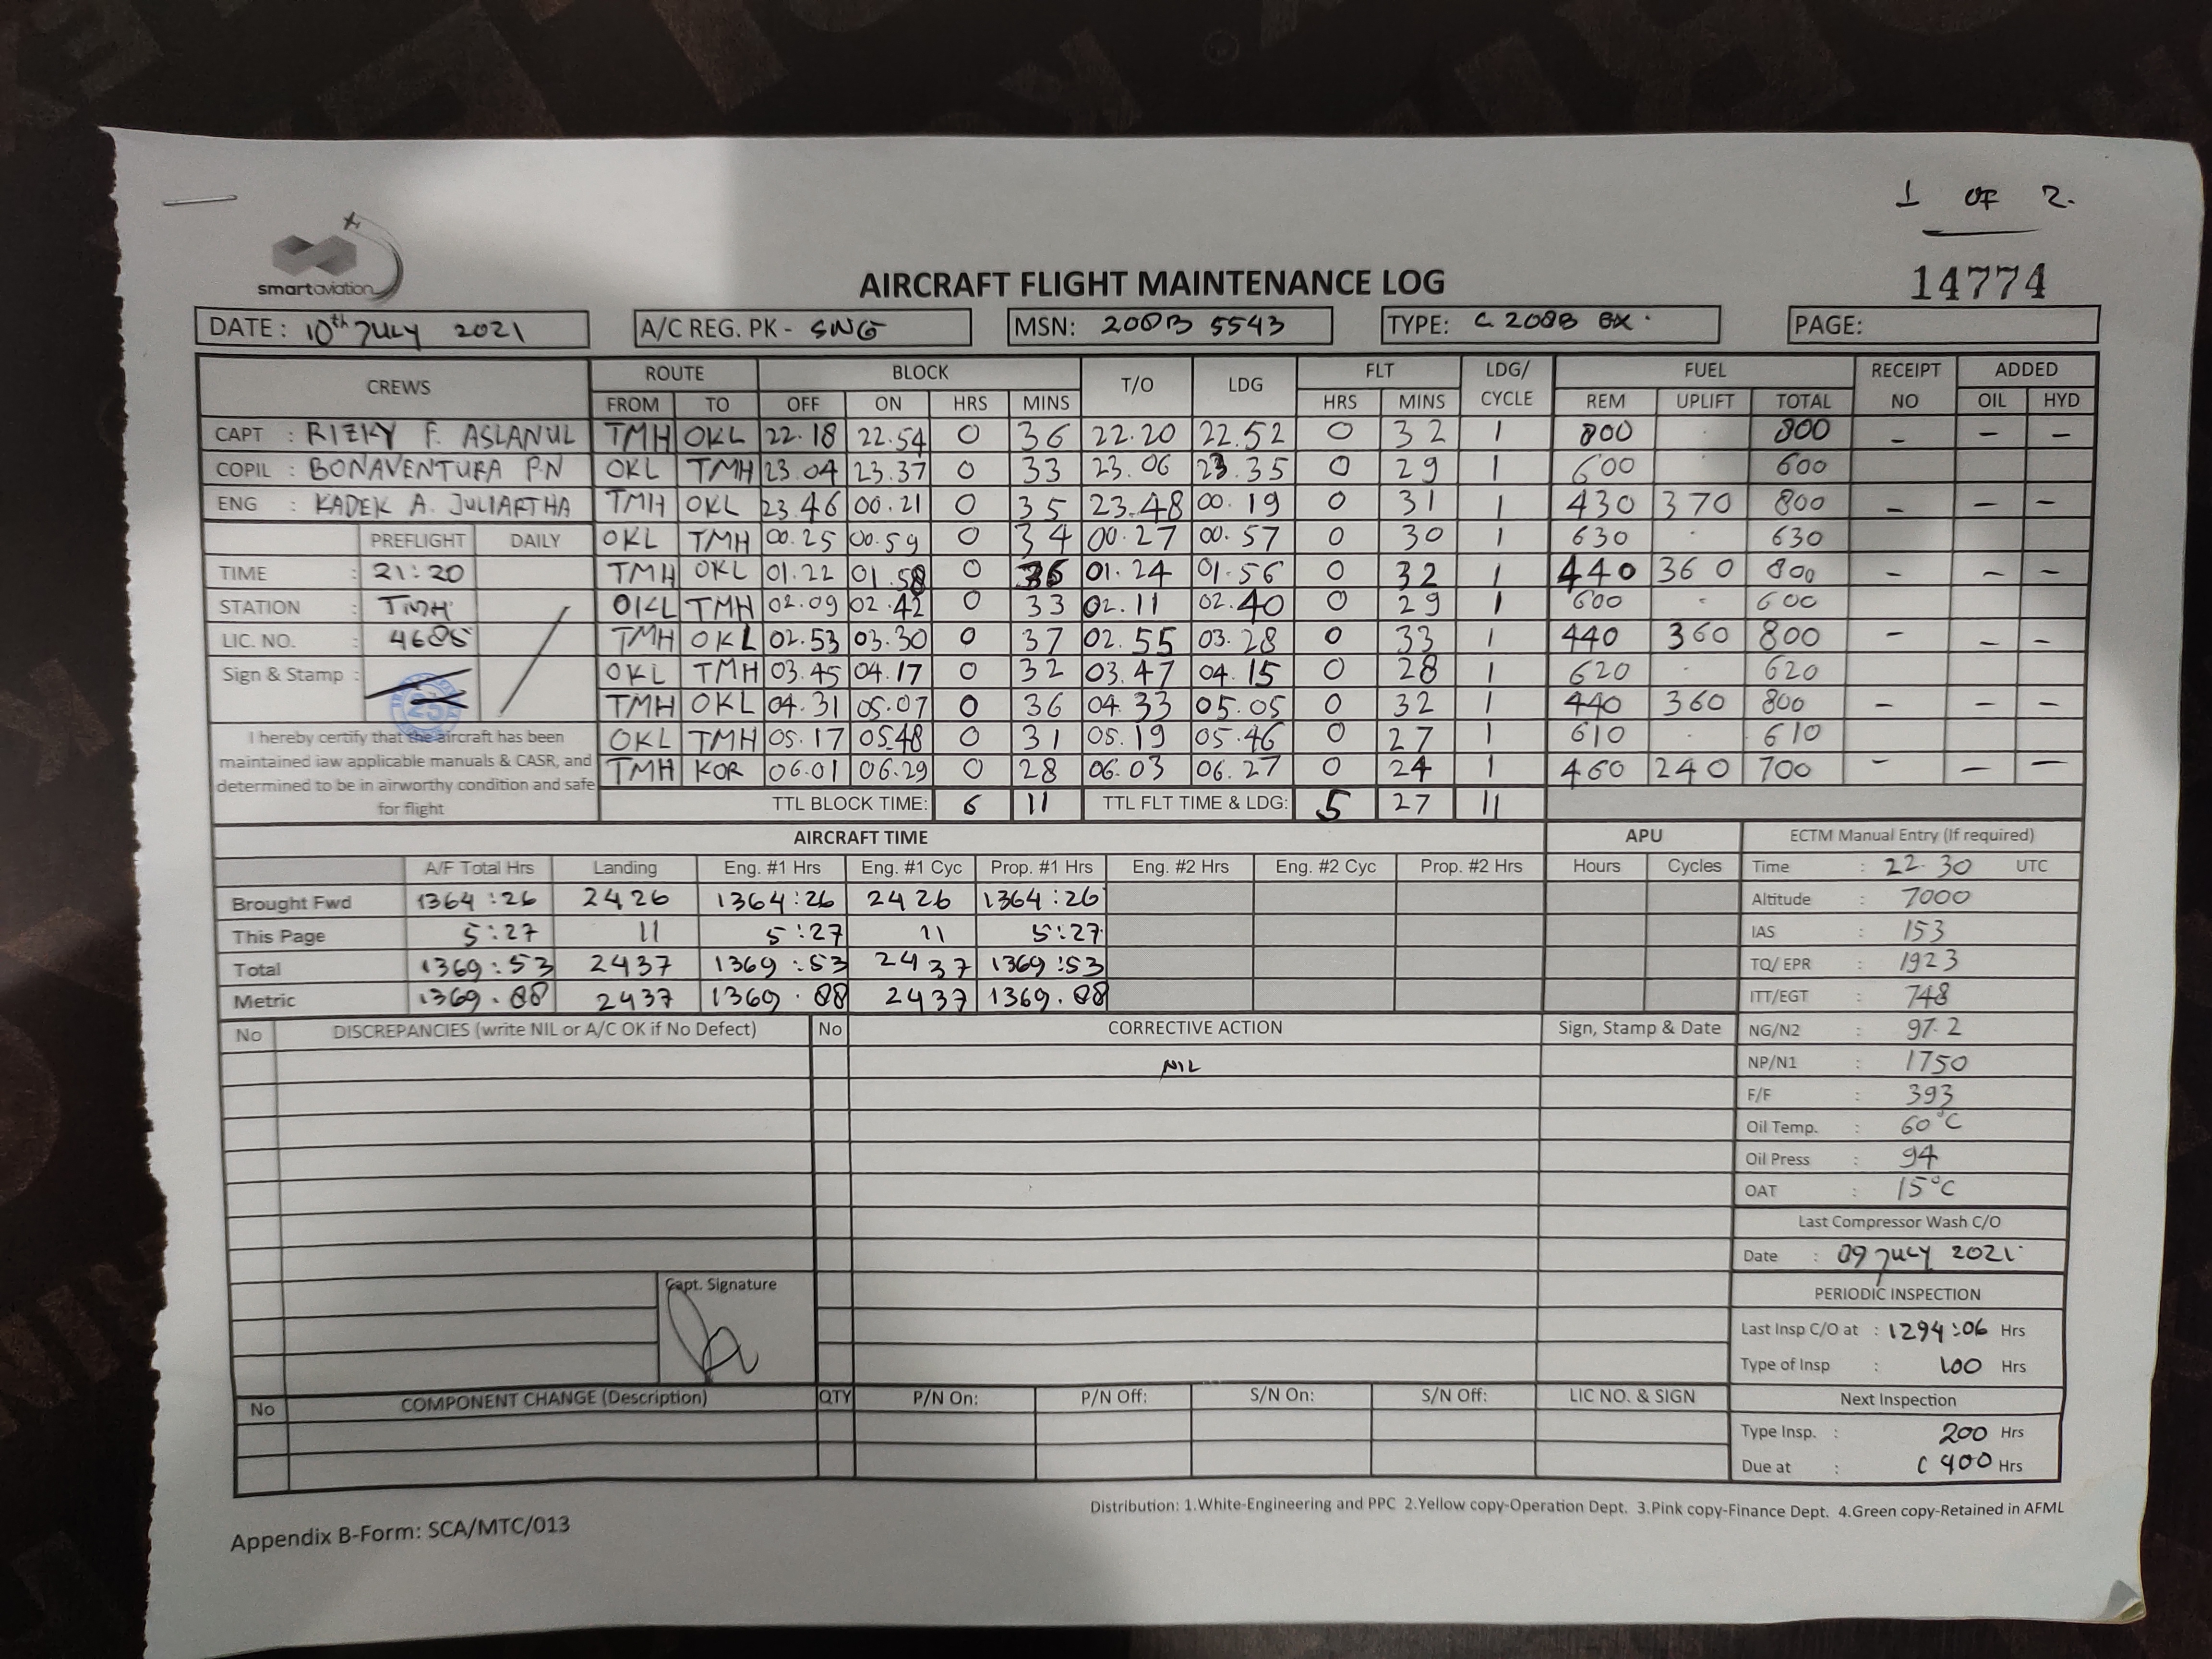 1 OF 2.
smartaviation
AIRCRAFT FLIGHT MAINTENANCE LOG
14774
DATE: 10th JULY 2021 A/C REG. PK - SNG MSN: 208B 5543 TYPE: C 208B EX. PAGE:
CREWS ROUTE BLOCK T/O LDG FLT LDG/ CYCLE FUEL RECEIPT NO ADDED
FROM TO OFF ON HRS MINS HRS MINS REM UPLIFT TOTAL OIL HYD
CAPT : RIZKY F. ASLANUL TMH OKL 22.18 22.54 0 36 22.20 22.52 0 32 1 800 . 800 - - -
COPIL : BONAVENTURA P.N OKL TMH 23.04 23.37 0 33 23.06 23.35 0 29 1 600 . 600
ENG : KADEK A. JULIARTHA TMH OKL 23.46 00.21 0 35 23.48 00.19 0 31 1 430 370 800 - - -
PREFLIGHT DAILY OKL TMH 00.25 00.59 0 34 00.27 00.57 0 30 1 630 . 630
TIME : 21:20 TMH OKL 01.22 01.58 0 36 01.24 01.56 0 32 1 440 360 800 - - -
STATION : TMH OKL TMH 02.09 02.42 0 33 02.11 02.40 0 29 1 600 - 600
LIC. NO. : 4685 TMH OKL 02.53 03.30 0 37 02.55 03.28 0 33 1 440 360 800 - - -
Sign & Stamp : OKL TMH 03.45 04.17 0 32 03.47 04.15 0 28 1 620 . 620
TMH OKL 04.31 05.07 0 36 04.33 05.05 0 32 1 440 360 800 - - -
OKL TMH 05.17 05.48 0 31 05.19 05.46 0 27 1 610 . 610
TMH KOR 06.01 06.29 0 28 06.03 06.27 0 24 1 460 240 700 - - -
25
I hereby certify that the aircraft has been
maintained iaw applicable manuals & CASR, and
determined to be in airworthy condition and safe
for flight
TTL BLOCK TIME: 6 11 TTL FLT TIME & LDG: 5 27 11
AIRCRAFT TIME APU ECTM Manual Entry (If required)
A/F Total Hrs Landing Eng. #1 Hrs Eng. #1 Cyc Prop. #1 Hrs Eng. #2 Hrs Eng. #2 Cyc Prop. #2 Hrs Hours Cycles Time : 22.30 UTC
Brought Fwd 1364:26 2426 1364:26 2426 1364:26 Altitude : 7000
This Page 5:27 11 5:27 11 5:27 IAS : 153
Total 1369:53 2437 1369:53 2437 1369:53 TQ/ EPR : 1923
Metric 1369.88 2437 1369.88 2437 1369.88 ITT/EGT : 748
No DISCREPANCIES (write NIL or A/C OK if No Defect) No CORRECTIVE ACTION Sign, Stamp & Date NG/N2 : 97.2
NIL NP/N1 : 1750
F/F : 393
Oil Temp. : 60°C
Oil Press : 94
OAT : 15°C
Last Compressor Wash C/O
Date : 09 JULY 2021
Capt. Signature PERIODIC INSPECTION
Last Insp C/O at : 1294:06 Hrs
Type of Insp : 100 Hrs
No COMPONENT CHANGE (Description) QTY P/N On: P/N Off: S/N On: S/N Off: LIC NO. & SIGN Next Inspection
Type Insp. : 200 Hrs
Due at : Hrs
Distribution: 1.White-Engineering and PPC 2.Yellow copy-Operation Dept. 3.Pink copy-Finance Dept. 4.Green copy-Retained in AFML
Appendix B-Form: SCA/MTC/013